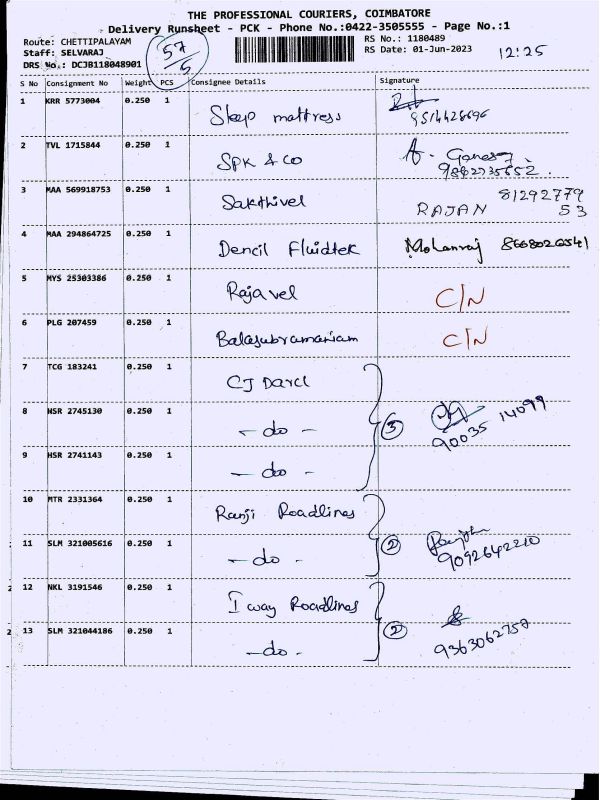 THE PROFESSIONAL COURIERS, COIMBATORE
Delivery Runsheet - PCK - Phone No.:0422-3505555 - Page No.:1
Route: CHETTIPALAYAM RS No.: 1180489
Staff: SELVARAJ RS Date: 01-Jun-2023 12:25
DRS No.: DCJB118048901 57/5
S No Consignment No Weight PCS Consignee Details Signature
1 KRR 5773004 0.250 1 Sleep mattress
9514428696
2 TVL 1715844 0.250 1 SPK & Co A. Ganesh
3 MAA 569918753 0.250 1 Sakthivel RAJAN 81292779
53
4 MAA 294864725 0.250 1 Dencil Fluidtek Mohanraj 8668026541
5 MYS 25303386 0.250 1 Rajavel C/N
6 PLG 207459 0.250 1 Balasubramaniam C/N
7 TCG 183241 0.250 1 CJ Darcl
8 HSR 2745130 0.250 1 - do - 3 90035 14099
9 HSR 2741143 0.250 1 - do -
10 MTR 2331364 0.250 1 Ranji Roadlines
11 SLM 321005616 0.250 1 - do - 2 9092642210
12 NKL 3191546 0.250 1 I way Roadlines
13 SLM 321044186 0.250 1 - do - 2 9363062757